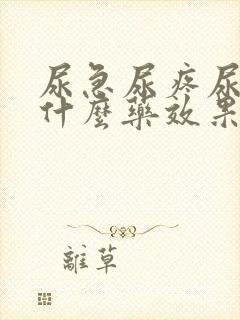 尿急尿疼尿
什麼藥效果
離草